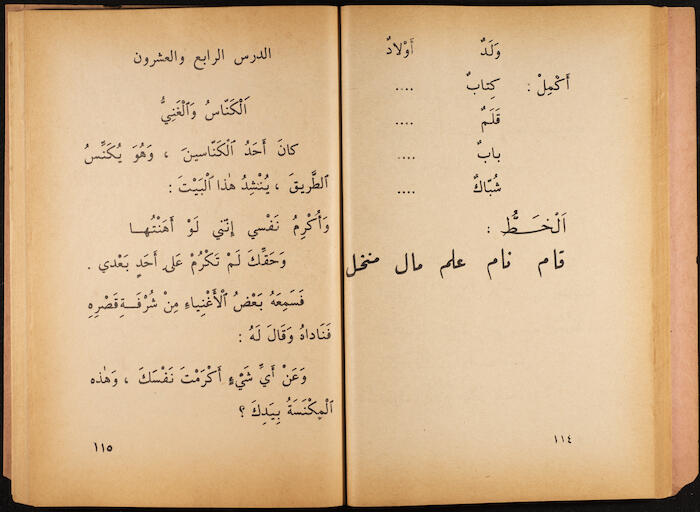 وَلَدٌ أَوْلادٌ
أَكْمِلْ : كِتابٌ ....
قَلَمٌ ....
بابٌ ....
شُبّاكٌ ....
اَلْخَطُّ :
قام نام علم مال منخل
١١٤
الدرس الرابع والعشرون
اَلْكَنّاسُ وَٱلْغَنِيُّ
كانَ أَحَدُ ٱلْكَنّاسينَ ، وَهُوَ يُكَنِّسُ
ٱلطَّريقَ ، يُنْشِدُ هٰذا ٱلْبَيْتَ :
وَأُكْرِمُ نَفْسي إِنَّني لَوْ أَهَنْتُهـا
وَحَقِّكَ لَمْ تَكْرُمْ عَلى أَحَدٍ بَعْدي .
فَسَمِعَهُ بَعْضُ ٱلْأَغْنِياءِ مِنْ شُرْفَـةِ قَصْرِهِ
فَنَاداهُ وَقَالَ لَهُ :
وَعَنْ أَيِّ شَيْءٍ أَكْرَمْتَ نَفْسَكَ ، وَهٰذه
ٱلْمِكْنَسَةُ بِيَدِكَ ؟
١١٥